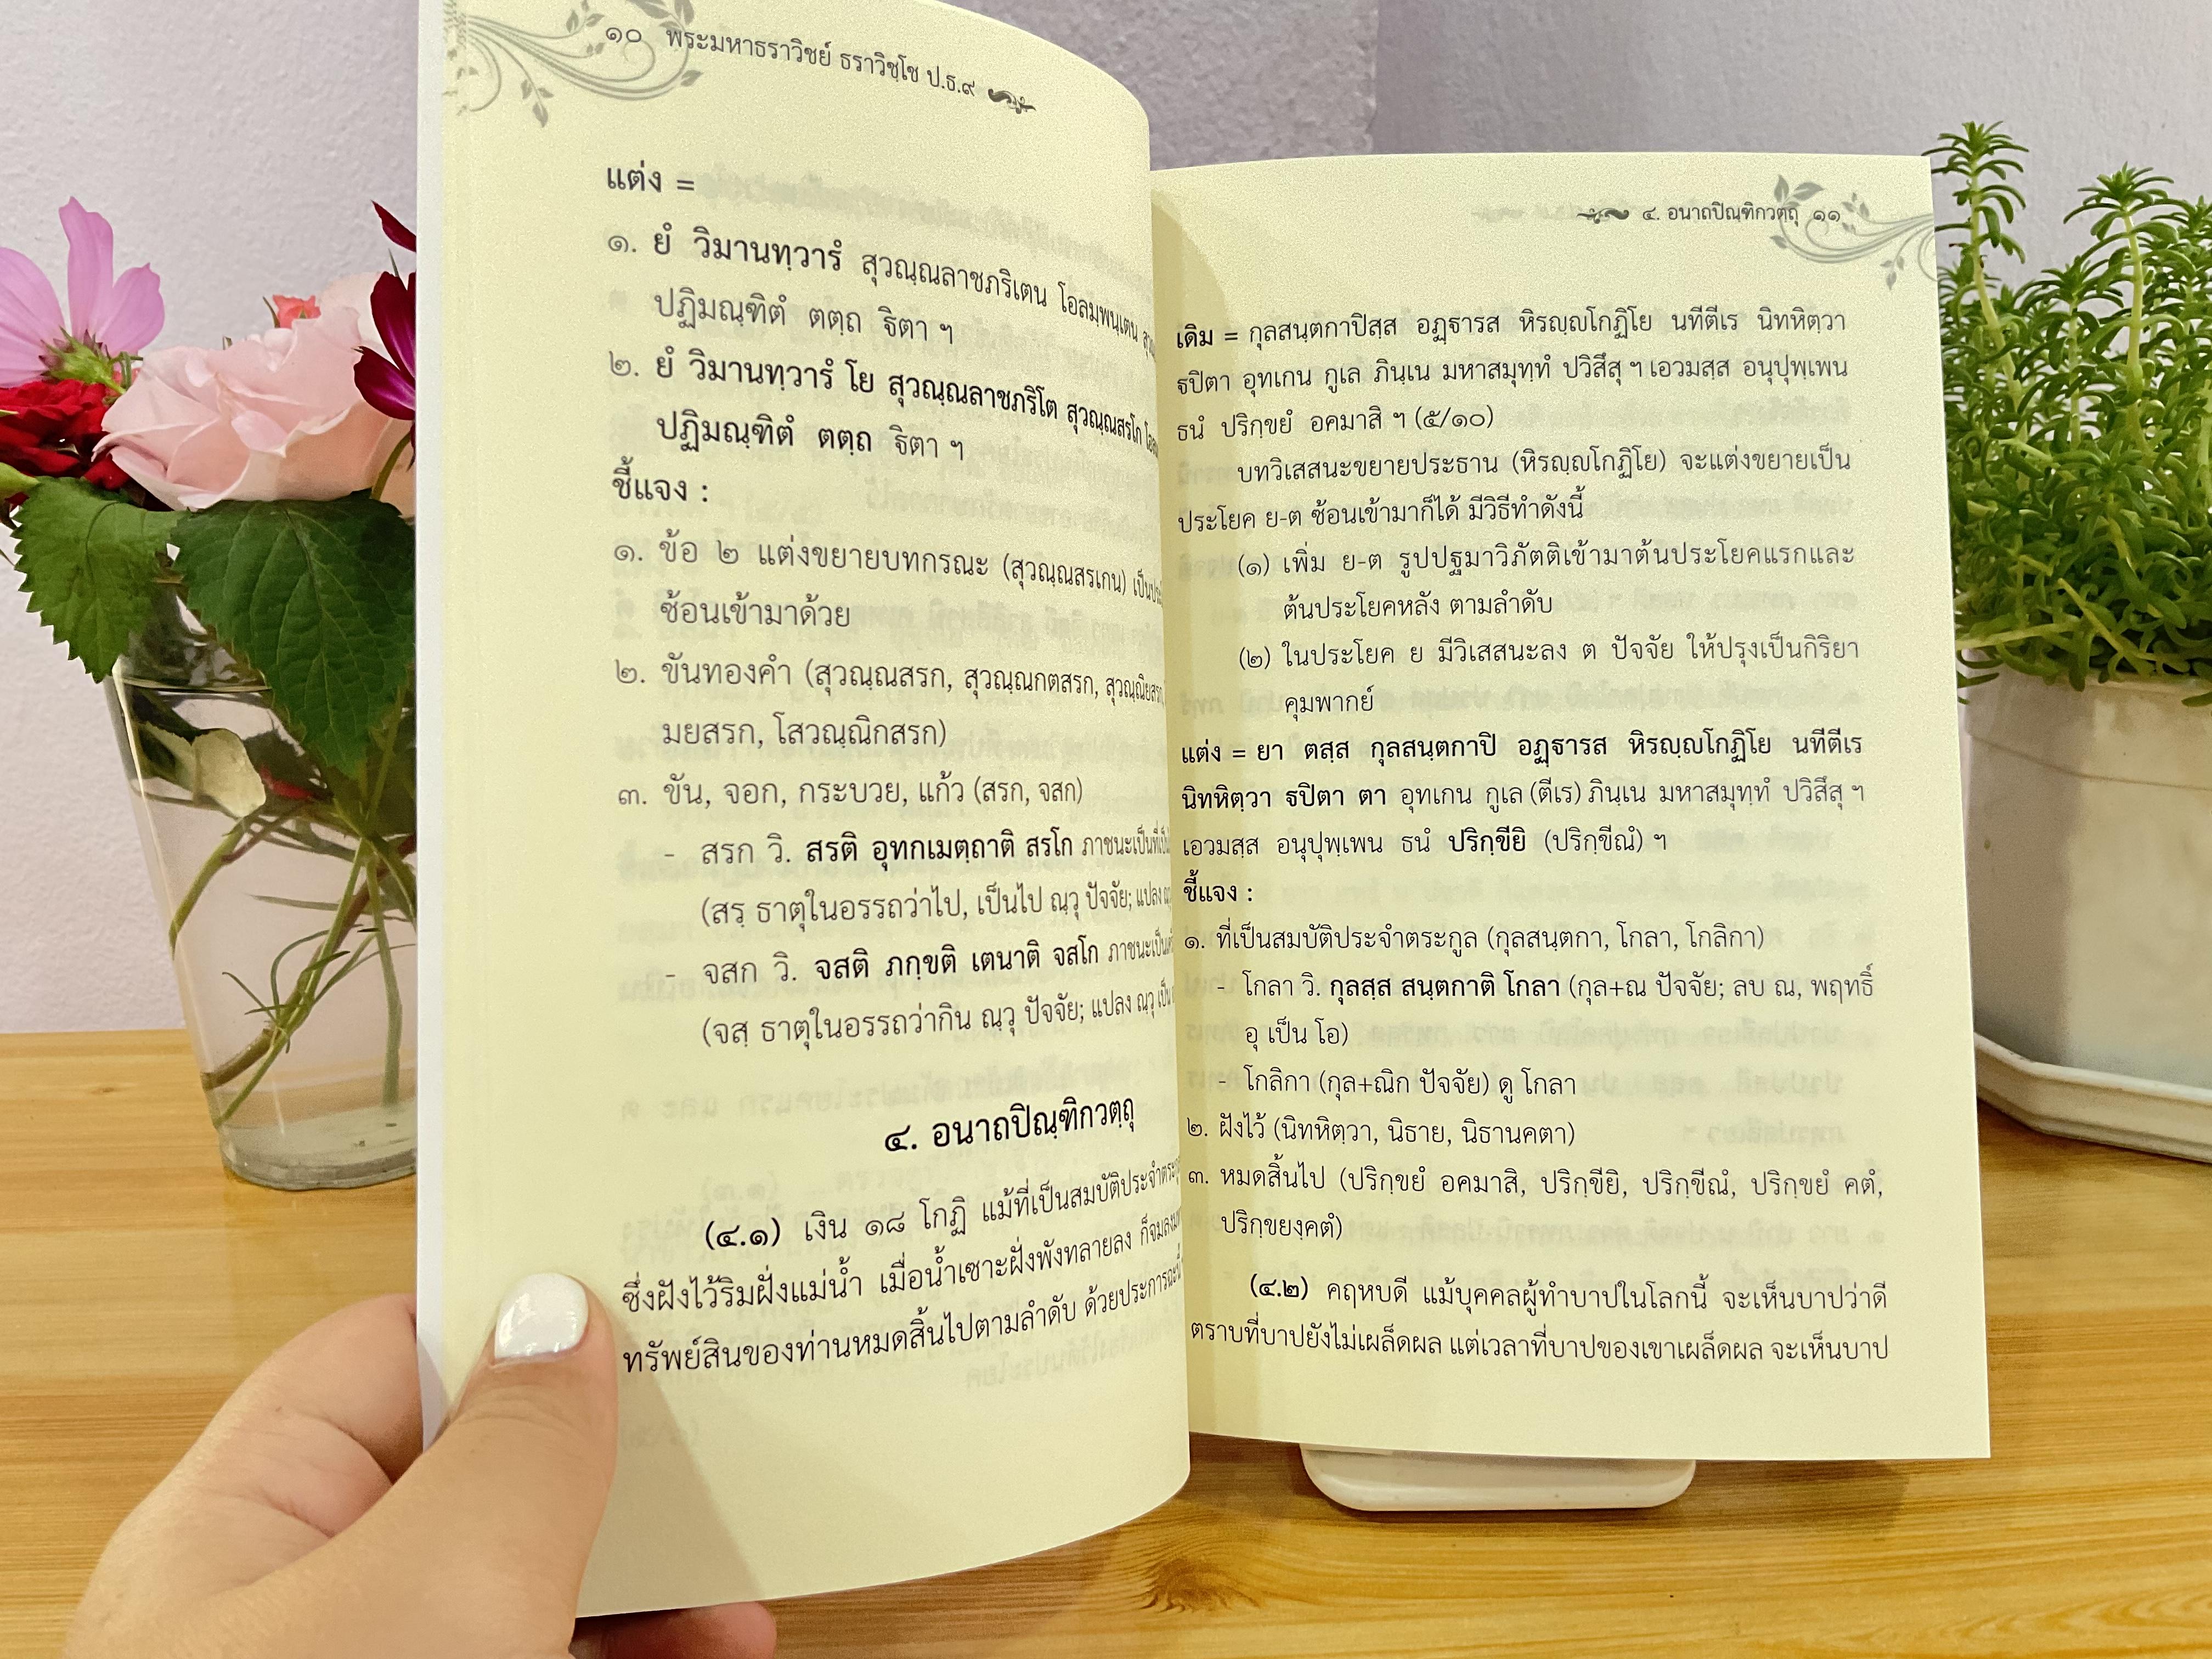 ๑๐ พระมหาธราวิชย์ ธราวิชฺโช ป.ธ.๙
แต่ง =
๑. ยํ วิมานทฺวารํ สุวณฺณลาชภริเตน โอลมฺพนฺเตน
ปฏิมณฺฑิตํ ตตฺถ ฐิตา ฯ
๒. ยํ วิมานทฺวารํ โย สุวณฺณลาชภริโต สุวณฺณสรโก
ปฏิมณฺฑิตํ ตตฺถ ฐิตา ฯ
ชี้แจง :
๑. ข้อ ๒ แต่งขยายบทกรณะ (สุวณฺณสรเกน)
ซ้อนเข้ามาด้วย
๒. ขันทองคำ (สุวณฺณสรก, สุวณฺณกตสรก, สุวณฺณิยสรก,
มยสรก, โสวณฺณิกสรก)
๓. ขัน, จอก, กระบวย, แก้ว (สรก, จสก)
- สรก วิ. สรติ อุทกเมตฺถาติ สรโก ภาชนะเป็นที่
(สรฺ ธาตุในอรรถว่าไป, เป็นไป ณฺวุ ปัจจัย; แปลง
- จสก วิ. จสติ ภกฺขติ เตนาติ จสโก ภาชนะเป็น
(จสฺ ธาตุในอรรถว่ากิน ณฺวุ ปัจจัย; แปลง ณฺวุ เป็น
๔. อนาถปิณฺฑิกวตฺถุ
(๔.๑) เงิน ๑๘ โกฏิ แม้ที่เป็นสมบัติประจำตระกูล
ซึ่งฝังไว้ริมฝั่งแม่น้ำ เมื่อน้ำเซาะฝั่งพังทลายลง
ทรัพย์สินของท่านหมดสิ้นไปตามลำดับ ด้วยประการฉะนี้
๔. อนาถปิณฺฑิกวตฺถุ ๑๑
เดิม = กุลสนฺตกาปิสฺส อฏฺฐารส หิรญฺญโกฏิโย นทีตีเร นิทหิตฺวา
ฐปิตา อุทเกน กูเล ภินฺเน มหาสมุทฺทํ ปวิสึสุ ฯ เอวมสฺส อนุปุพฺเพน
ธนํ ปริกฺขยํ อคมาสิ ฯ (๕/๑๐)
บทวิเสสนะขยายประธาน (หิรญฺญโกฏิโย) จะแต่งขยายเป็น
ประโยค ย-ต ซ้อนเข้ามาก็ได้ มีวิธีทำดังนี้
(๑) เพิ่ม ย-ต รูปปฐมาวิภัตติเข้ามาต้นประโยคแรกและ
ต้นประโยคหลัง ตามลำดับ
(๒) ในประโยค ย มีวิเสสนะลง ต ปัจจัย ให้ปรุงเป็นกิริยา
คุมพากย์
แต่ง = ยา ตสฺส กุลสนฺตกาปิ อฏฺฐารส หิรญฺญโกฏิโย นทีตีเร
นิทหิตฺวา ฐปิตา ตา อุทเกน กูเล (ตีเร) ภินฺเน มหาสมุทฺทํ ปวิสึสุ ฯ
เอวมสฺส อนุปุพฺเพน ธนํ ปริกฺขียิ (ปริกฺขีณํ) ฯ
ชี้แจง :
๑. ที่เป็นสมบัติประจำตระกูล (กุลสนฺตกา, โกลา, โกลิกา)
- โกลา วิ. กุลสฺส สนฺตกาติ โกลา (กุล+ณ ปัจจัย; ลบ ณ, พฤทธิ์
อุ เป็น โอ)
- โกลิกา (กุล+ณิก ปัจจัย) ดู โกลา
๒. ฝังไว้ (นิทหิตฺวา, นิธาย, นิธานคตา)
๓. หมดสิ้นไป (ปริกฺขยํ อคมาสิ, ปริกฺขียิ, ปริกฺขีณํ, ปริกฺขยํ คตํ,
ปริกฺขยงฺคตํ)
(๔.๒) คฤหบดี แม้บุคคลผู้ทำบาปในโลกนี้ จะเห็นบาปว่าดี
ตราบที่บาปยังไม่เผล็ดผล แต่เวลาที่บาปของเขาเผล็ดผล จะเห็นบาป